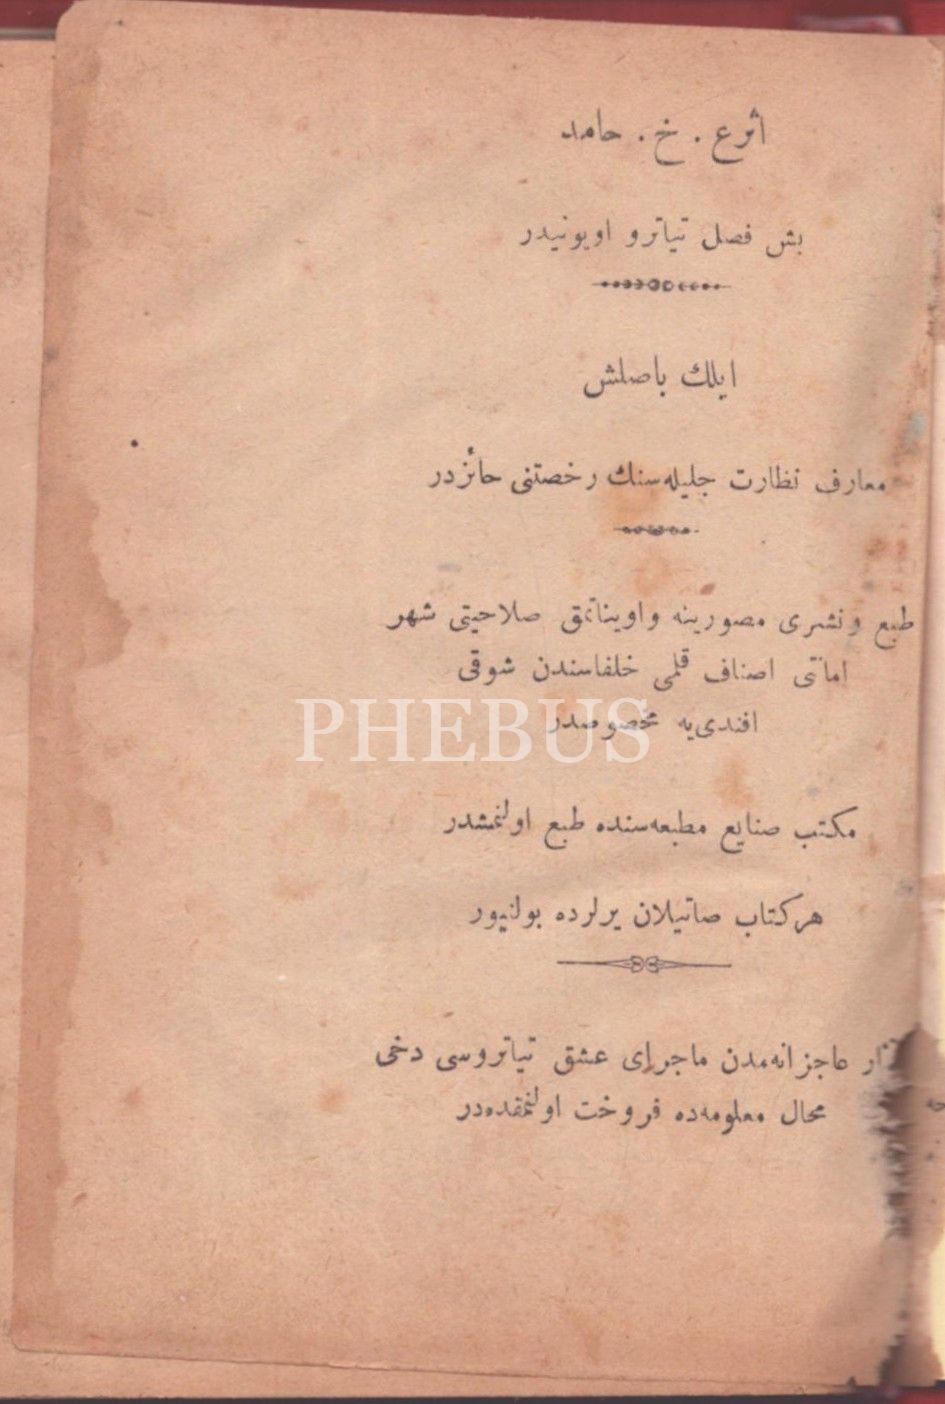 اثر ع . خ . حامد
بش فصل تياترو اويونيدر
ايلك باصلش
معارف نظارت جليله‌سنك رخصتنى حائزدر
طبع ونشرى مصورينه واويناتمق صلاحيتى شهر
امانتى اصناف قلمى خلفاسندن شوقى
افندى‌يه مخصوصدر
PHEBUS
مكتب صنايع مطبعه‌سنده طبع اولنمشدر
هر كتاب صاتيلان يرلرده بولنيور
عاجزانه‌مدن ماجراى عشق تياتروسى دخى
محال معلومه‌ده فروخت اولنمقده‌در